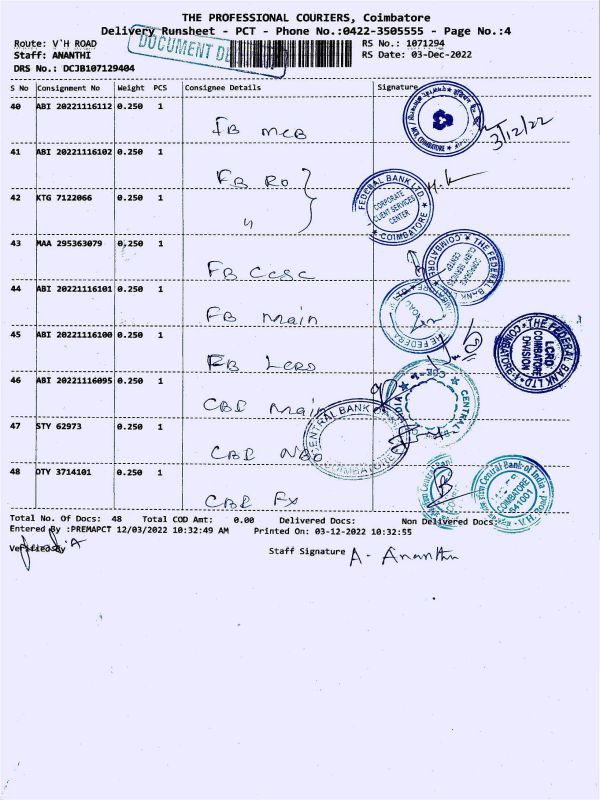 THE PROFESSIONAL COURIERS, Coimbatore
Delivery Runsheet - PCT - Phone No.:0422-3505555 - Page No.:4
DOCUMENT
Route: V'H ROAD RS No.: 1071294
Staff: ANANTHI RS Date: 03-Dec-2022
DRS No.: DCJB107129404
S No Consignment No Weight PCS Consignee Details Signature
40 ABI 20221116112 0.250 1
FB MCB
3/12/22
41 ABI 20221116102 0.250 1
FB RO
FEDERAL BANK LTD. CORPORATE CLIENT SERVICES CENTER COIMBATORE
42 KTG 7122066 0.250 1
"
43 MAA 295363079 0,250 1
FB CCSC
THE FEDERAL BANK COIMBATORE
44 ABI 20221116101 0.250 1
FB Main
THE FEDERAL
45 ABI 20221116100 0.250 1
FB LCRD
THE FEDERAL BANK LTD. LCRD COIMBATORE DIVISION COIMBATORE
46 ABI 20221116095 0.250 1
CBI Main
CENTRAL
CENTRAL BANK COIMBATORE
47 STY 62973 0.250 1
CBI
48 OTY 3714101 0.250 1
CBI FX
Central Bank of India COIMBATORE 641001
Total No. Of Docs: 48 Total COD Amt: 0.00 Delivered Docs: Non Delivered Docs:
Entered By :PREMAPCT 12/03/2022 10:32:49 AM Printed On: 03-12-2022 10:32:55
Verified By Staff Signature A. Ananthi